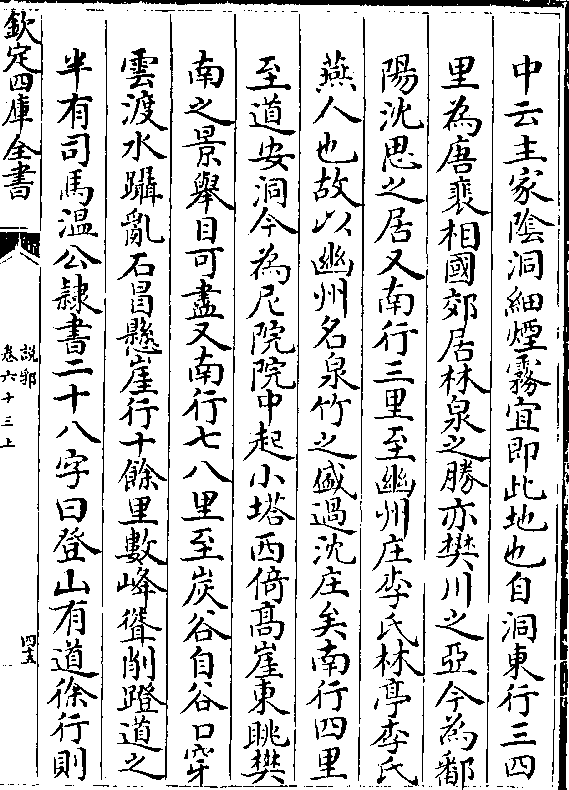 中云主家陰洞細煙霧宜即此地也自洞東行三四
里為唐裴相國郊居林泉之勝亦樊川之亞今為鄱
陽沈思之居又南行三里至幽州庄李氏林亭李氏
燕人也故以幽州名泉竹之盛過沈庄矣南行四里
至道安洞今為尼院院中起小塔西倚髙崖東眺樊
南之景舉目可盡又南行七八里至炭谷自谷口穿
雲渡水躡亂石冒懸崖行十餘里數峰聳削蹬道之
半有司馬温公隷書二十八字曰登山有道徐行則
欽定四庫全書
說郛
卷六十三上
四五